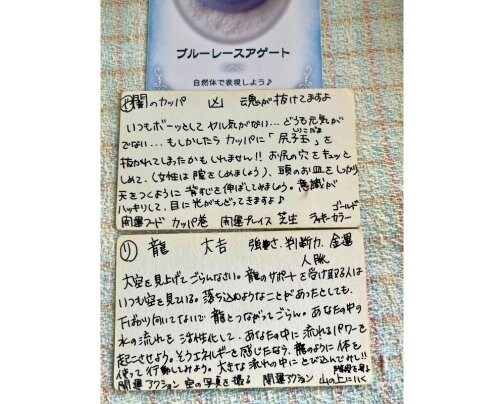 ブルーレースアゲート
自然体で表現しよう♪
闇のカッパ 凶 魂が抜けてますよ
いつもボーッとして ヤル気がない… どうも元気が
でない… もしかしたら カッパに「尻子玉」を
抜かれてしまったかもしれません!! お尻の穴をキュッと
しめて、(女性は膣をしめましょう)、頭のお皿をしっかり
天をつくように 背すじを伸ばしてみましょう。意識が
ハッキリして、目に光がもどってきますよ♪ ゴールド
開運フード カッパ巻 開運プレイス 芝生 ラッキーカラー
龍 大吉 強さ、判断力、金運
人脈
大空を見上げてごらんなさい。龍のサポートを受け取る人は
いつも空を見ている。落ち込むようなことがあったとしても、
下ばかり向いてないで 龍とつながってごらん。あなたの中の
水の流れを 活性化して、あなたの中に流れるパワーを
起こさせよう。そうエネルギーを感じたなら、龍のように 体を
使って 行動してみよう。大きな流れの中に とび込んでみて!!
開運アクション 空の写真を撮る 開運アクション 山の上に行く